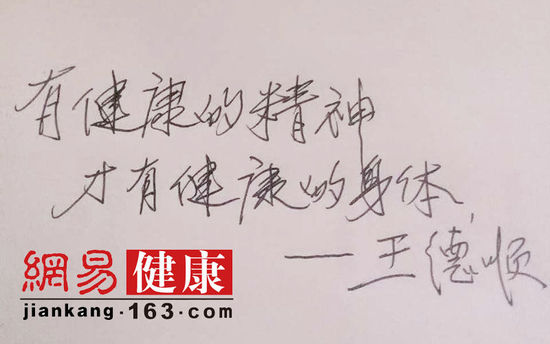 有健康的精神
才有健康的身体
——王德顺
網易健康
jiankang·163.com